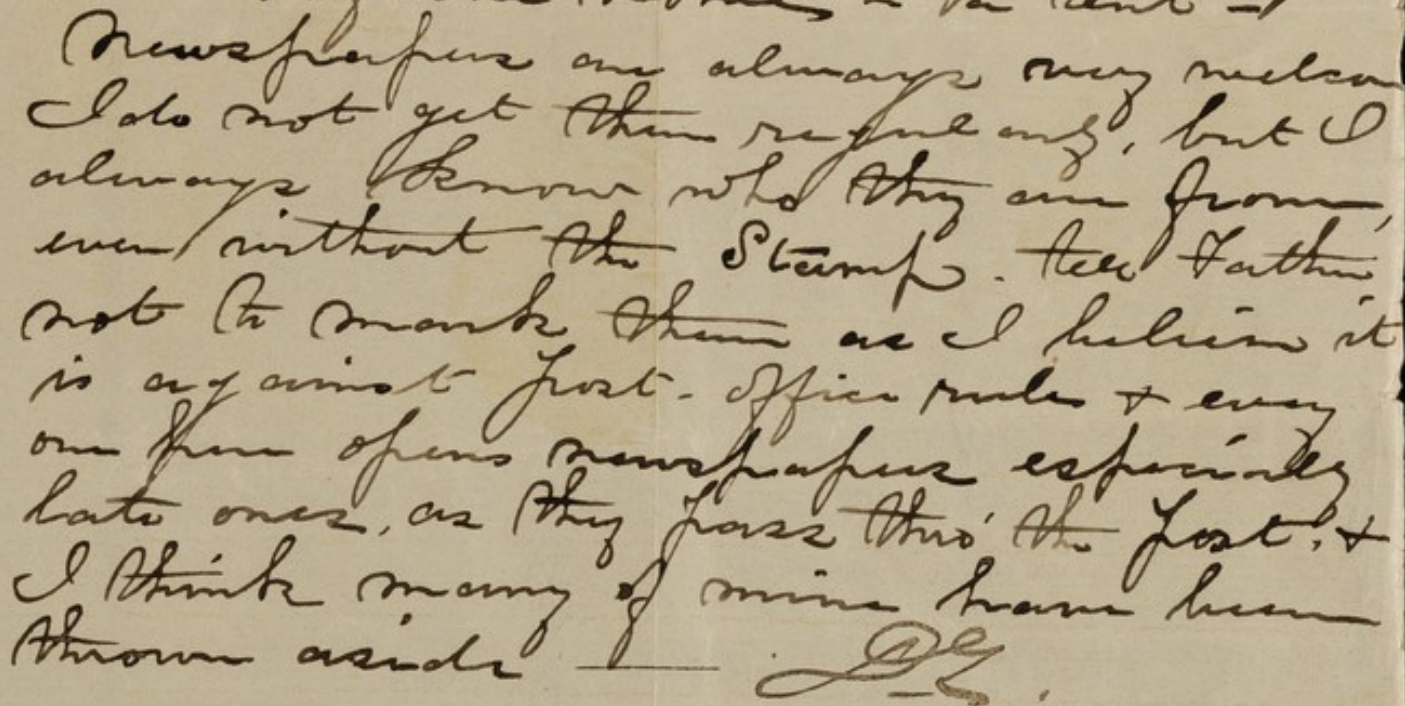 Newspapers are always very welcome
I do not get them regularly, but I
always know who they are from,
even without the Stamp. tell Father
not to mark them as I believe it
is against post-office rules & every
one here opens newspapers especially
late ones, as they pass thro' the post, &
I think many of mine have been
thrown aside —